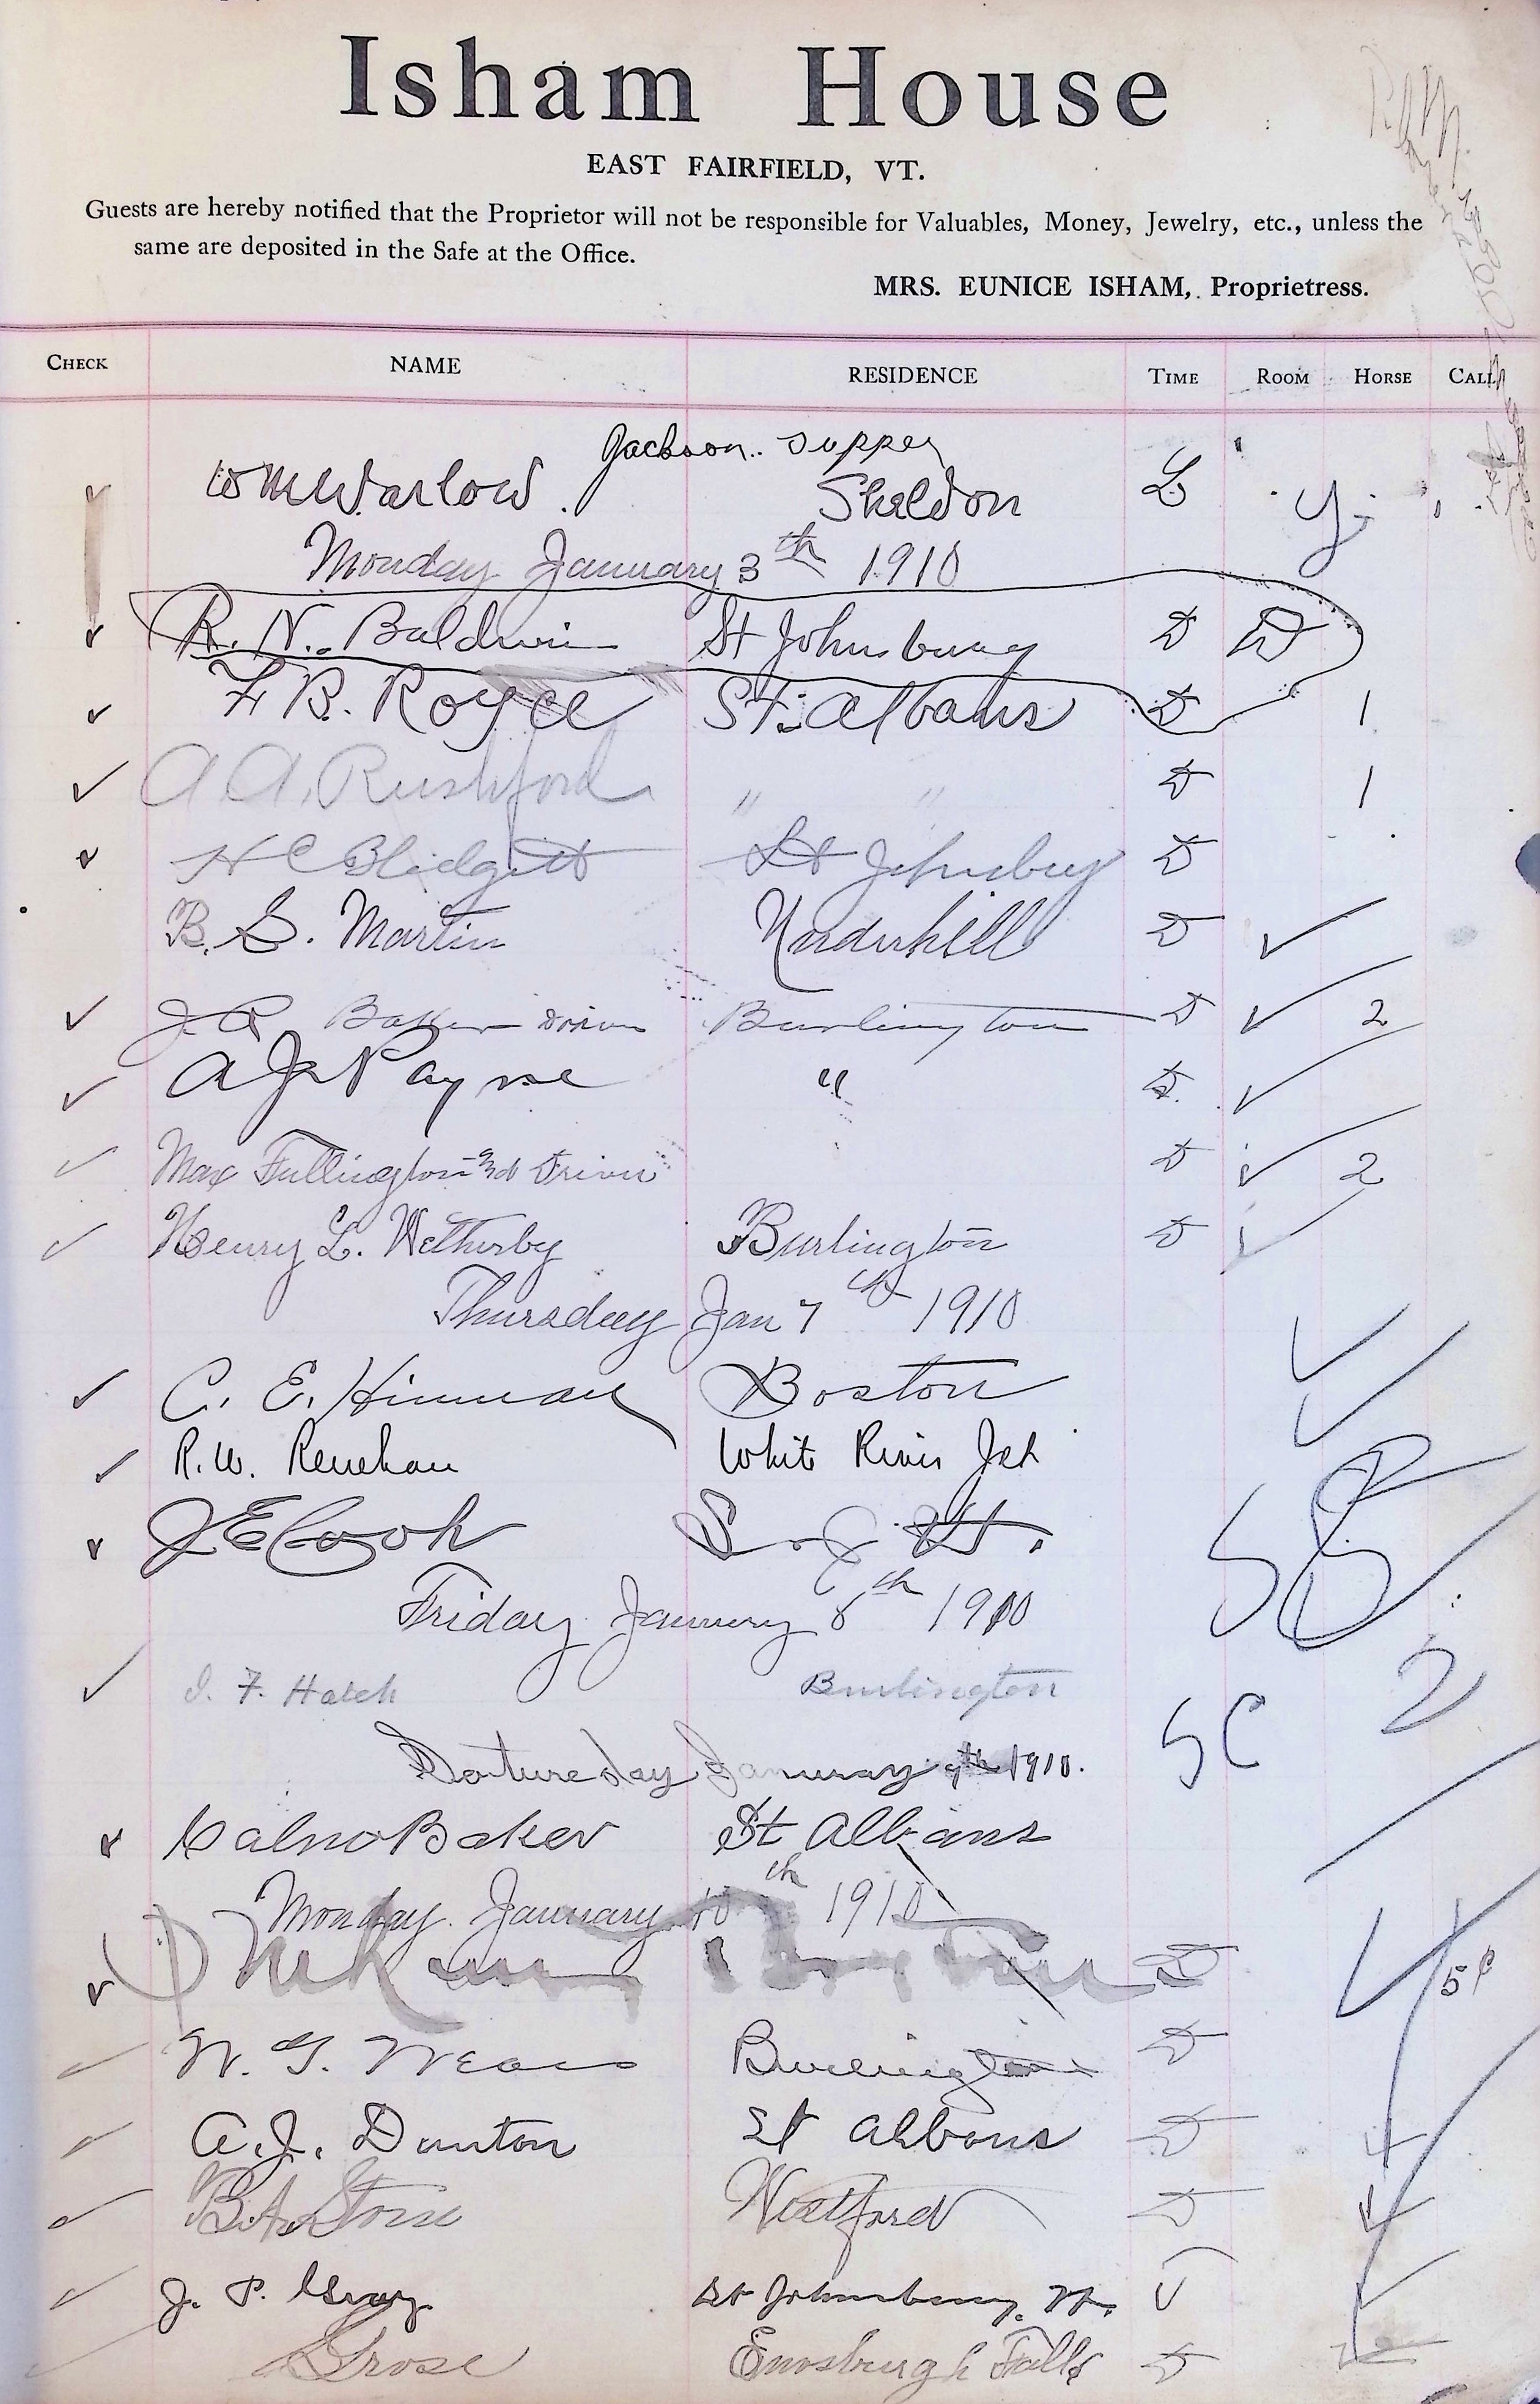 Isham House
EAST FAIRFIELD, VT.
Guests are hereby notified that the Proprietor will not be responsible for Valuables, Money, Jewelry, etc., unless the
same are deposited in the Safe at the Office.
MRS. EUNICE ISHAM, Proprietress.
CHECK NAME RESIDENCE TIME ROOM HORSE CALL
Jackson.. supper
Wm Warlow. Sheldon L
Monday January 3th 1910
R. N. Baldwin St Johnsbury D
F B. Royce St. Albans D 1
A A. Rushford " " D 1
H C Blidgett St Johnsbury D
B. G. Martin Underhill D ✓
J. R Burlington D ✓ 2
A J Payne " D ✓
Max Fullington and Driver D ✓ 2
Henry L. Wetherby Burlington D ✓
Thursday Jan 7th 1910
C. E. Hinman Boston
R. W. Renehan White River Jct
J E Cook S. J Vt.
Friday January 8th 1910
J. F. Hatch Burlington 2
Satureday January 9th 1910. 5 C
Calno Baker St Albans
Monday. January 10th 1910
D 5¢
W. G. Burlington D
A. J. Dunton St Albans D
B. A. Stone Westford D
J. P. Gray St Johnsbury. Vt.
Grose Enosburgh Falls D